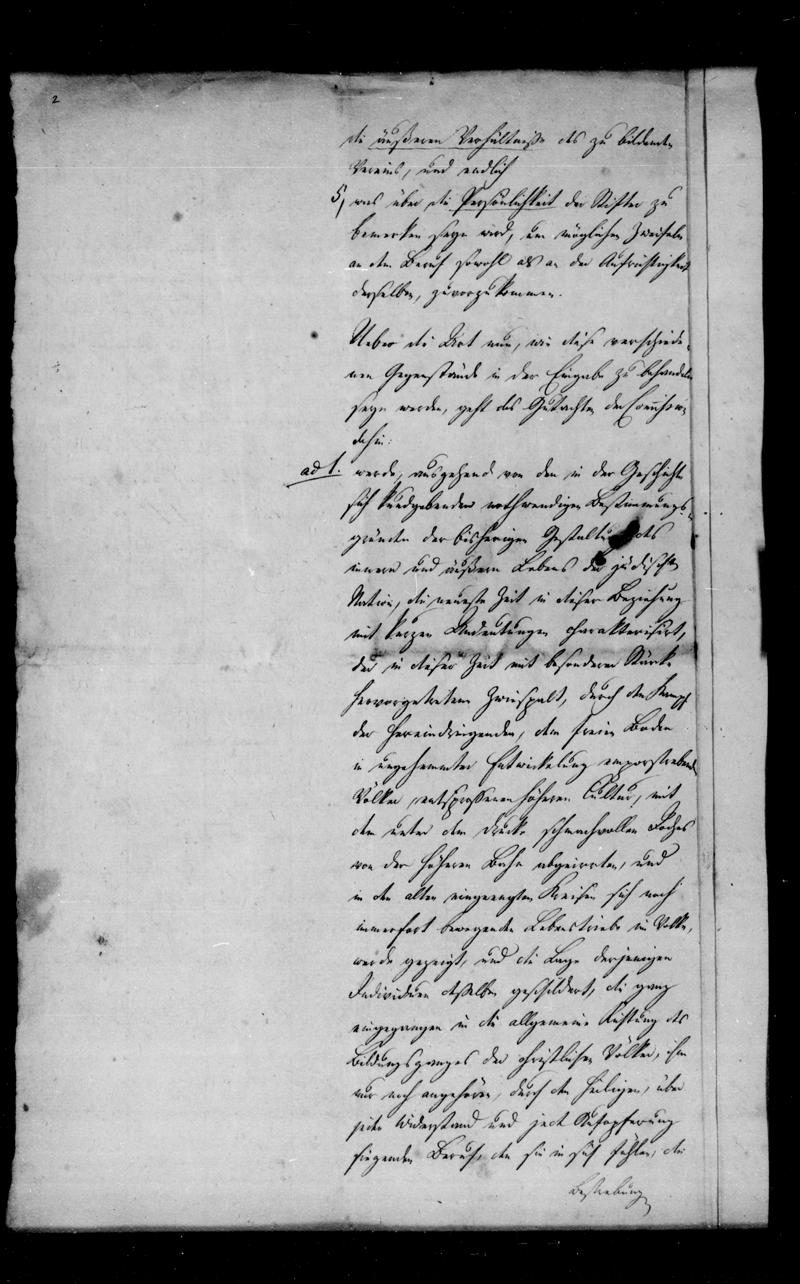 2
die äußeren Verhältnisse des zu bildenden
Vereins, und endlich
5, was über die Persönlichkeit der Stifter zu
bemerken seyn wird, um möglichen Zweifeln
an dem Beruf sowohl als an der Aufrichtigkeit
derselben, zuvorzukommen.
Ueber die Art nun, wie diese verschiede-
nen Gegenstände in der Eingabe zu behandeln
seyn werden, geht das Gutachten der
dahin:
ad 1. werde, ausgehend von den in der Geschichte
sich kundgebenden nothwendigen Bestimmungs-
gründen der bisherigen Gestaltung des
innern und äußern Lebens der jüdischen
Nation, die neueste Zeit in dieser Beziehung
mit kurzen Andeutungen charakterisirt,
der in dieser Zeit mit besonderer Stärke
hervorgetretene Zwiespalt, durch den Kampf
der hereindringenden, dem freien Boden
in ungehemmter Entwickelung emporstrebender
Völker entsprossenen höheren Cultur, mit
dem unter dem Drucke schmachvollen Joches
von der höheren Bahn abgeirrten, und
in den alten eingeengten Kreisen sich noch
immerfort bewegenden Lebenstriebe im Volke,
werde gezeigt, und die Lage derjenigen
Individuen desselben geschildert, die ganz
eingegangen in die allgemeine Richtung des
Bildungsganges der christlichen Völker, ihm
nur noch angehören, durch den heiligen, über
jeden Widerstand und jede Aufopferung
siegenden Beruf, den sie in sich fühlen, die
Bestrebung